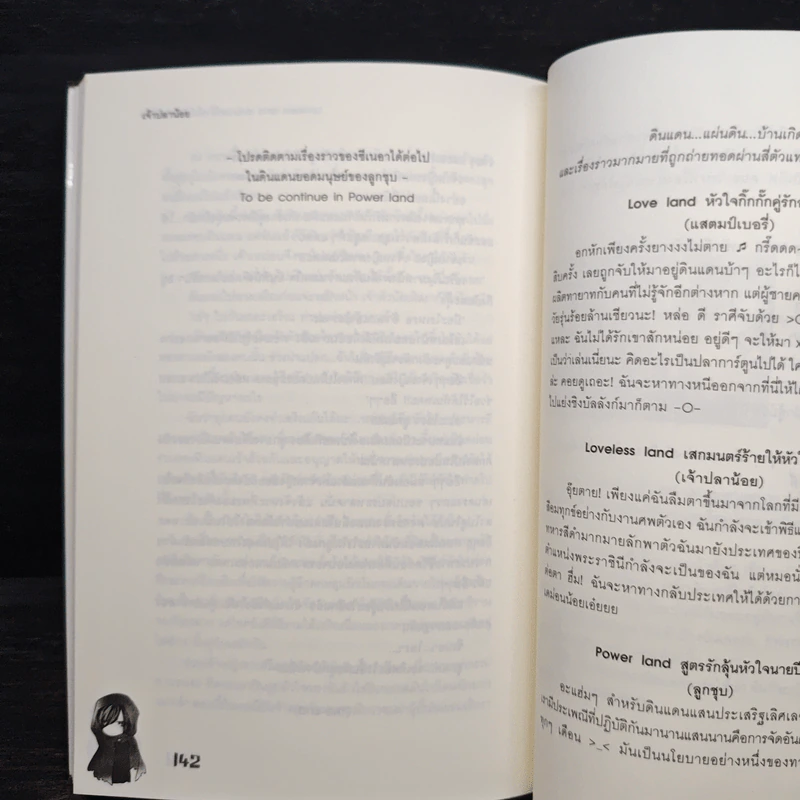 เจ้าปลาน้อย
- โปรดติดตามเรื่องราวของซีเนอาได้ต่อไป
ในดินแดนยอดมนุษย์ของลูกชุบ -
To be continue in Power land
142
ดินแดน...แผ่นดิน...บ้านเกิด
และเรื่องราวมากมายที่ถูกถ่ายทอดผ่านสี่ตัวแท
Love land หัวใจกิ๊กกั๊กคู่รัก
(แสตมป์เบอรี่)
อกหักเพียงครั้งยางงงไม่ตาย ♬ กรี๊ดดด
สิบครั้ง เลยถูกจับให้มาอยู่ดินแดนบ้าๆ อะไรก็ไ
ผลิตทายาทกับคนที่ไม่รู้จักอีกต่างหาก แต่ผู้ชายค
วัยรุ่นร้อยล้านเชียวนะ! หล่อ ดี ราศีจับด้วย >O
แหละ ฉันไม่ได้รักเขาสักหน่อย อยู่ดีๆ จะให้มา x
เป็นว่าเล่นเนี่ยนะ คิดอะไรเป็นปลาการ์ตูนไปได้ ใค
ล่ะ คอยดูเถอะ! ฉันจะหาทางหนีออกจากที่นี่ให้ได้
ไปแย่งชิงบัลลังก์มาก็ตาม -O-
Loveless land เสกมนตร์ร้ายให้หัวใ
(เจ้าปลาน้อย)
อุ๊ยตาย! เพียงแค่ฉันลืมตาขึ้นมาจากโลกที่มี
ล้อมทุกข์อย่างกับงานศพตัวเอง ฉันกำลังจะเข้าพิธีแ
ทหารสีดำมากมายลักพาตัวฉันมายังประเทศของ
ตำแหน่งพระราชินีกำลังจะเป็นของฉัน แต่หมอนั่
ต่อตา ฮึ่ม! ฉันจะหาทางกลับประเทศให้ได้ด้วยกา
เหม่อนน้อยเอ๋ยยย
Power land สูตรรักลุ้นหัวใจนายปี
(ลูกชุบ)
อะแฮ่มๆ สำหรับดินแดนแสนประเสริฐเลิศเล
เรามีประเพณีที่ปฏิบัติกันมานานแสนนานคือการจัดอัน
ทุกๆ เดือน >_< มันเป็นนโยบายอย่างหนึ่งของทา